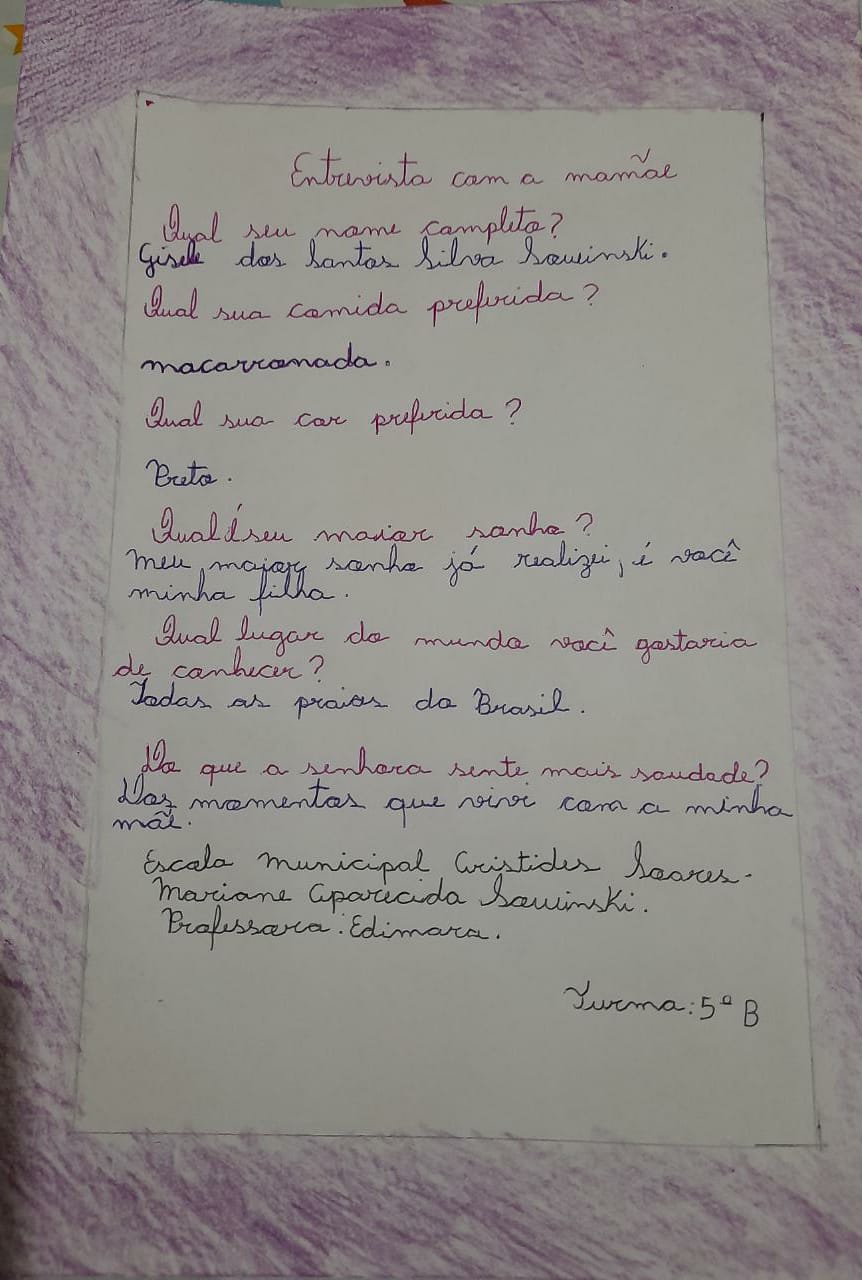 Entrevista com a mamãe
Qual seu nome completo?
Gisele dos Santos Silva Sawinski.
Qual sua comida preferida?
macarronada.
Qual sua cor preferida?
Preto.
Qual é seu maior sonho?
Meu maior sonho já realizei, é você
minha filha.
Qual lugar do mundo você gostaria
de conhecer?
Todas as praias do Brasil.
Do que a senhora sente mais saudade?
Dos momentos que vivi com a minha
mãe.
Escola Municipal Aristides Soares.
Mariane Aparecida Sawinski.
Professora: Edimara.
Turma: 5º B